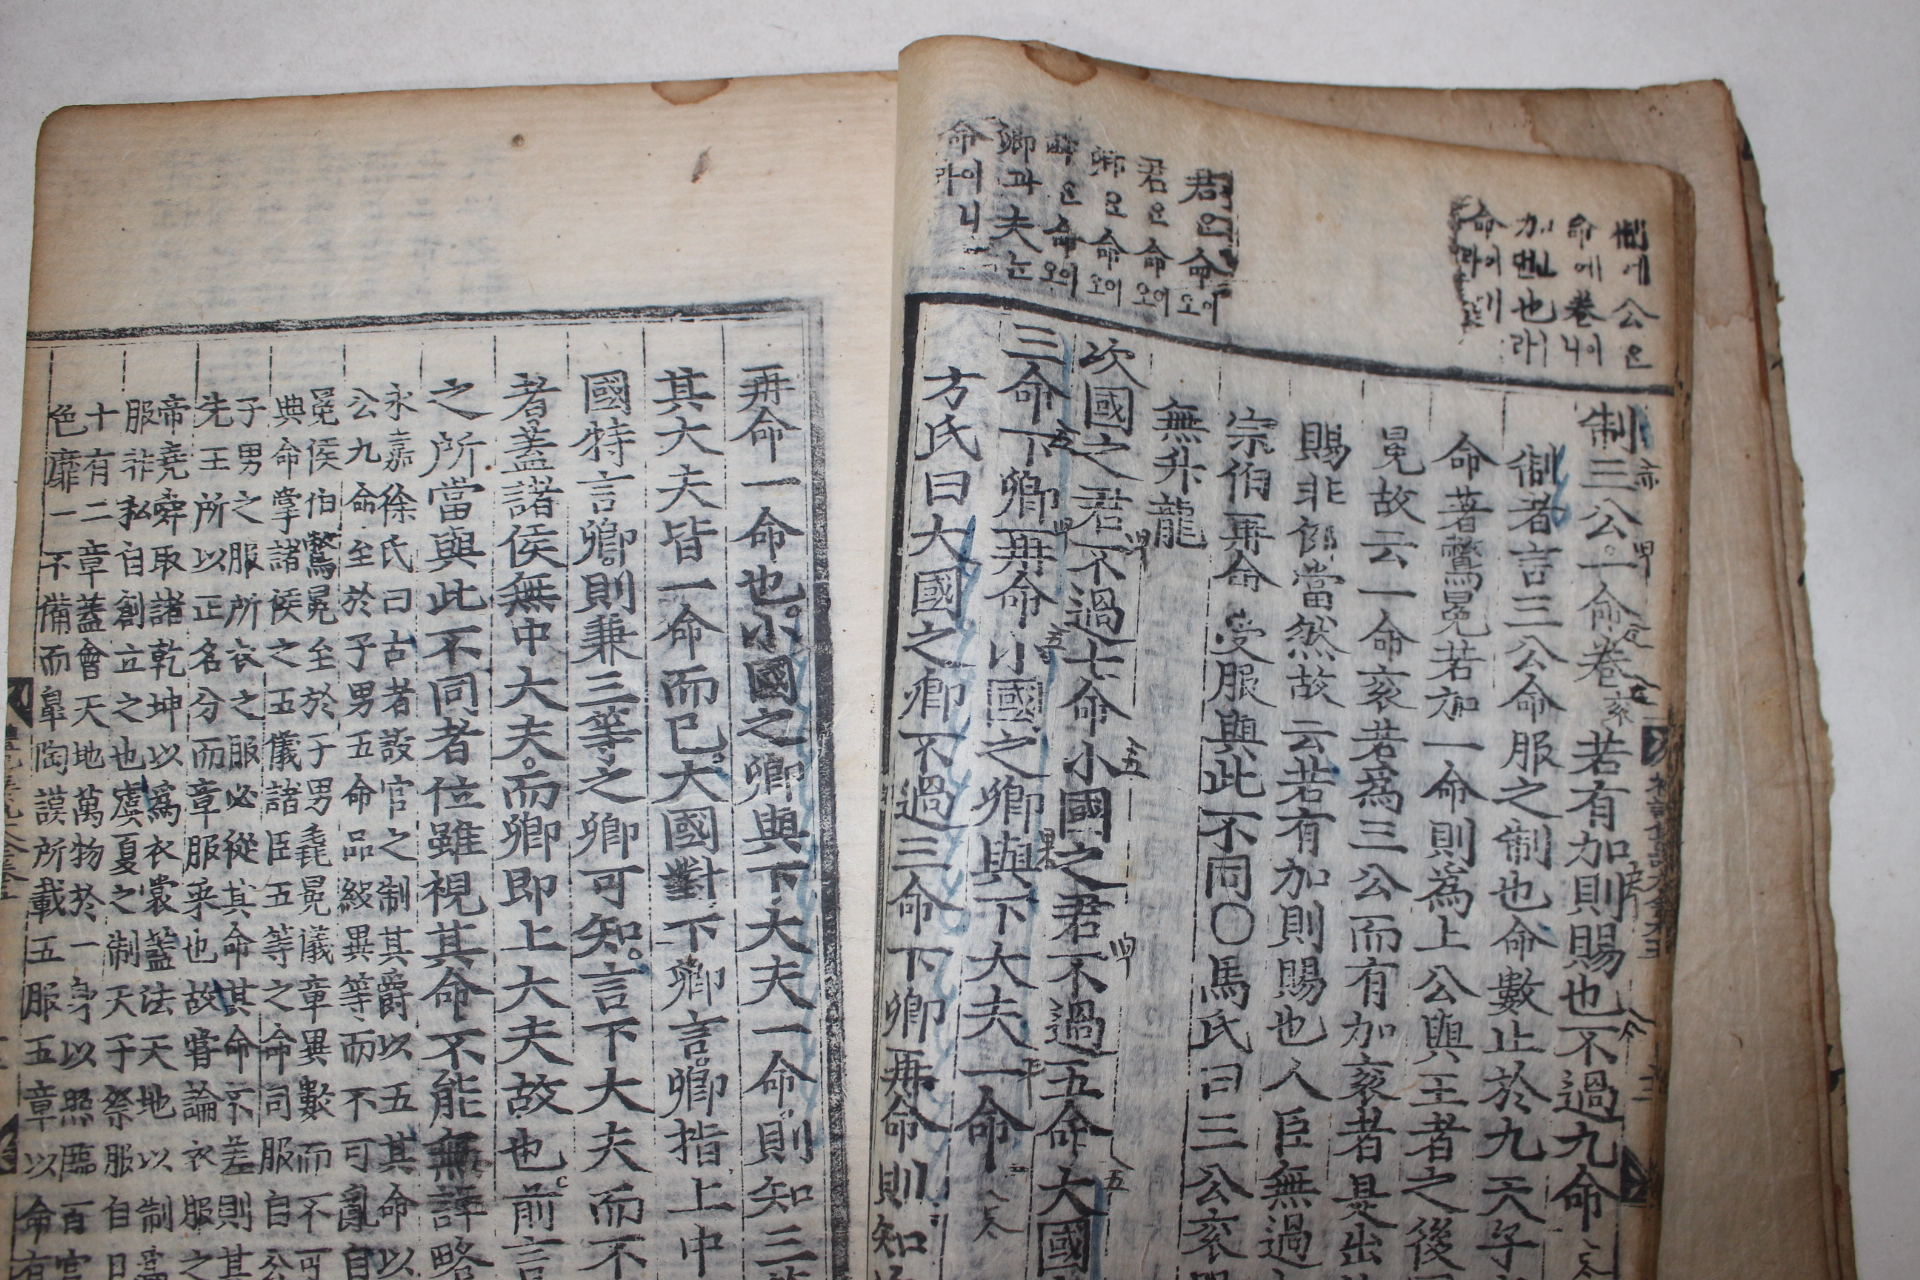 制에公은
命에卷니이
加면也라
命이라
君은命오이
君은命오이
卿은命오이
은命오이
卿과夫는
命이니라
制三公一命卷若有加則賜也不過九命
制者言三公命服之制也命數止於九天子
命著鷩冕若加一命則為上公與王者之後
冕故云一命衮若為三公而有加衮者是出
賜非例當然故云若有加則賜也人臣無過
宗伯再命受服與此不同○馬氏曰三公衮
無升龍
次國之君不過七命小國之君不過五命大國
三命下卿再命小國之卿與下大夫一命
方氏曰大國之卿不過三命下卿再命則知
再命一命也小國之卿與下大夫一命則知三
其大夫皆一命而已大國對下卿言卿指上中
國特言卿則兼三等之卿可知言下大夫而不
者蓋諸侯無中大夫而卿即上大夫故也前言
之所當與此不同者位雖視其命不能無詳略
永嘉徐氏曰古者設官之制其爵以五其命以
公九命至於子男五命品級異等而不可亂自
冕侯伯鷩冕至於子男毳冕儀章異數而不可
典命掌諸侯之五儀諸臣五等之命同服自公
子男之服所衣之服必從其命其命不差則其
先王所以正名分而章服采也故嘗論衣服之
帝堯舜取諸乾坤以為衣裳蓋法天地以制
服非私自創立之也虞夏之制天子祭服自日
十有二章蓋會天地萬物於一身以照臨百官
色靡一不備而皐陶謨所載五服五章以命有